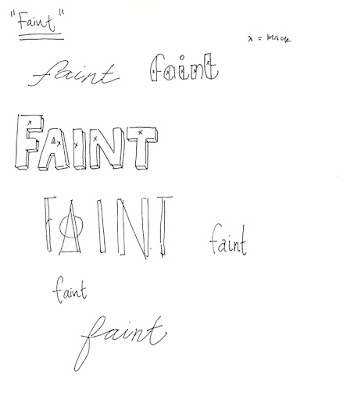 "Faint"
x = black
faint faint
FAINT
FAINT faint
faint
faint